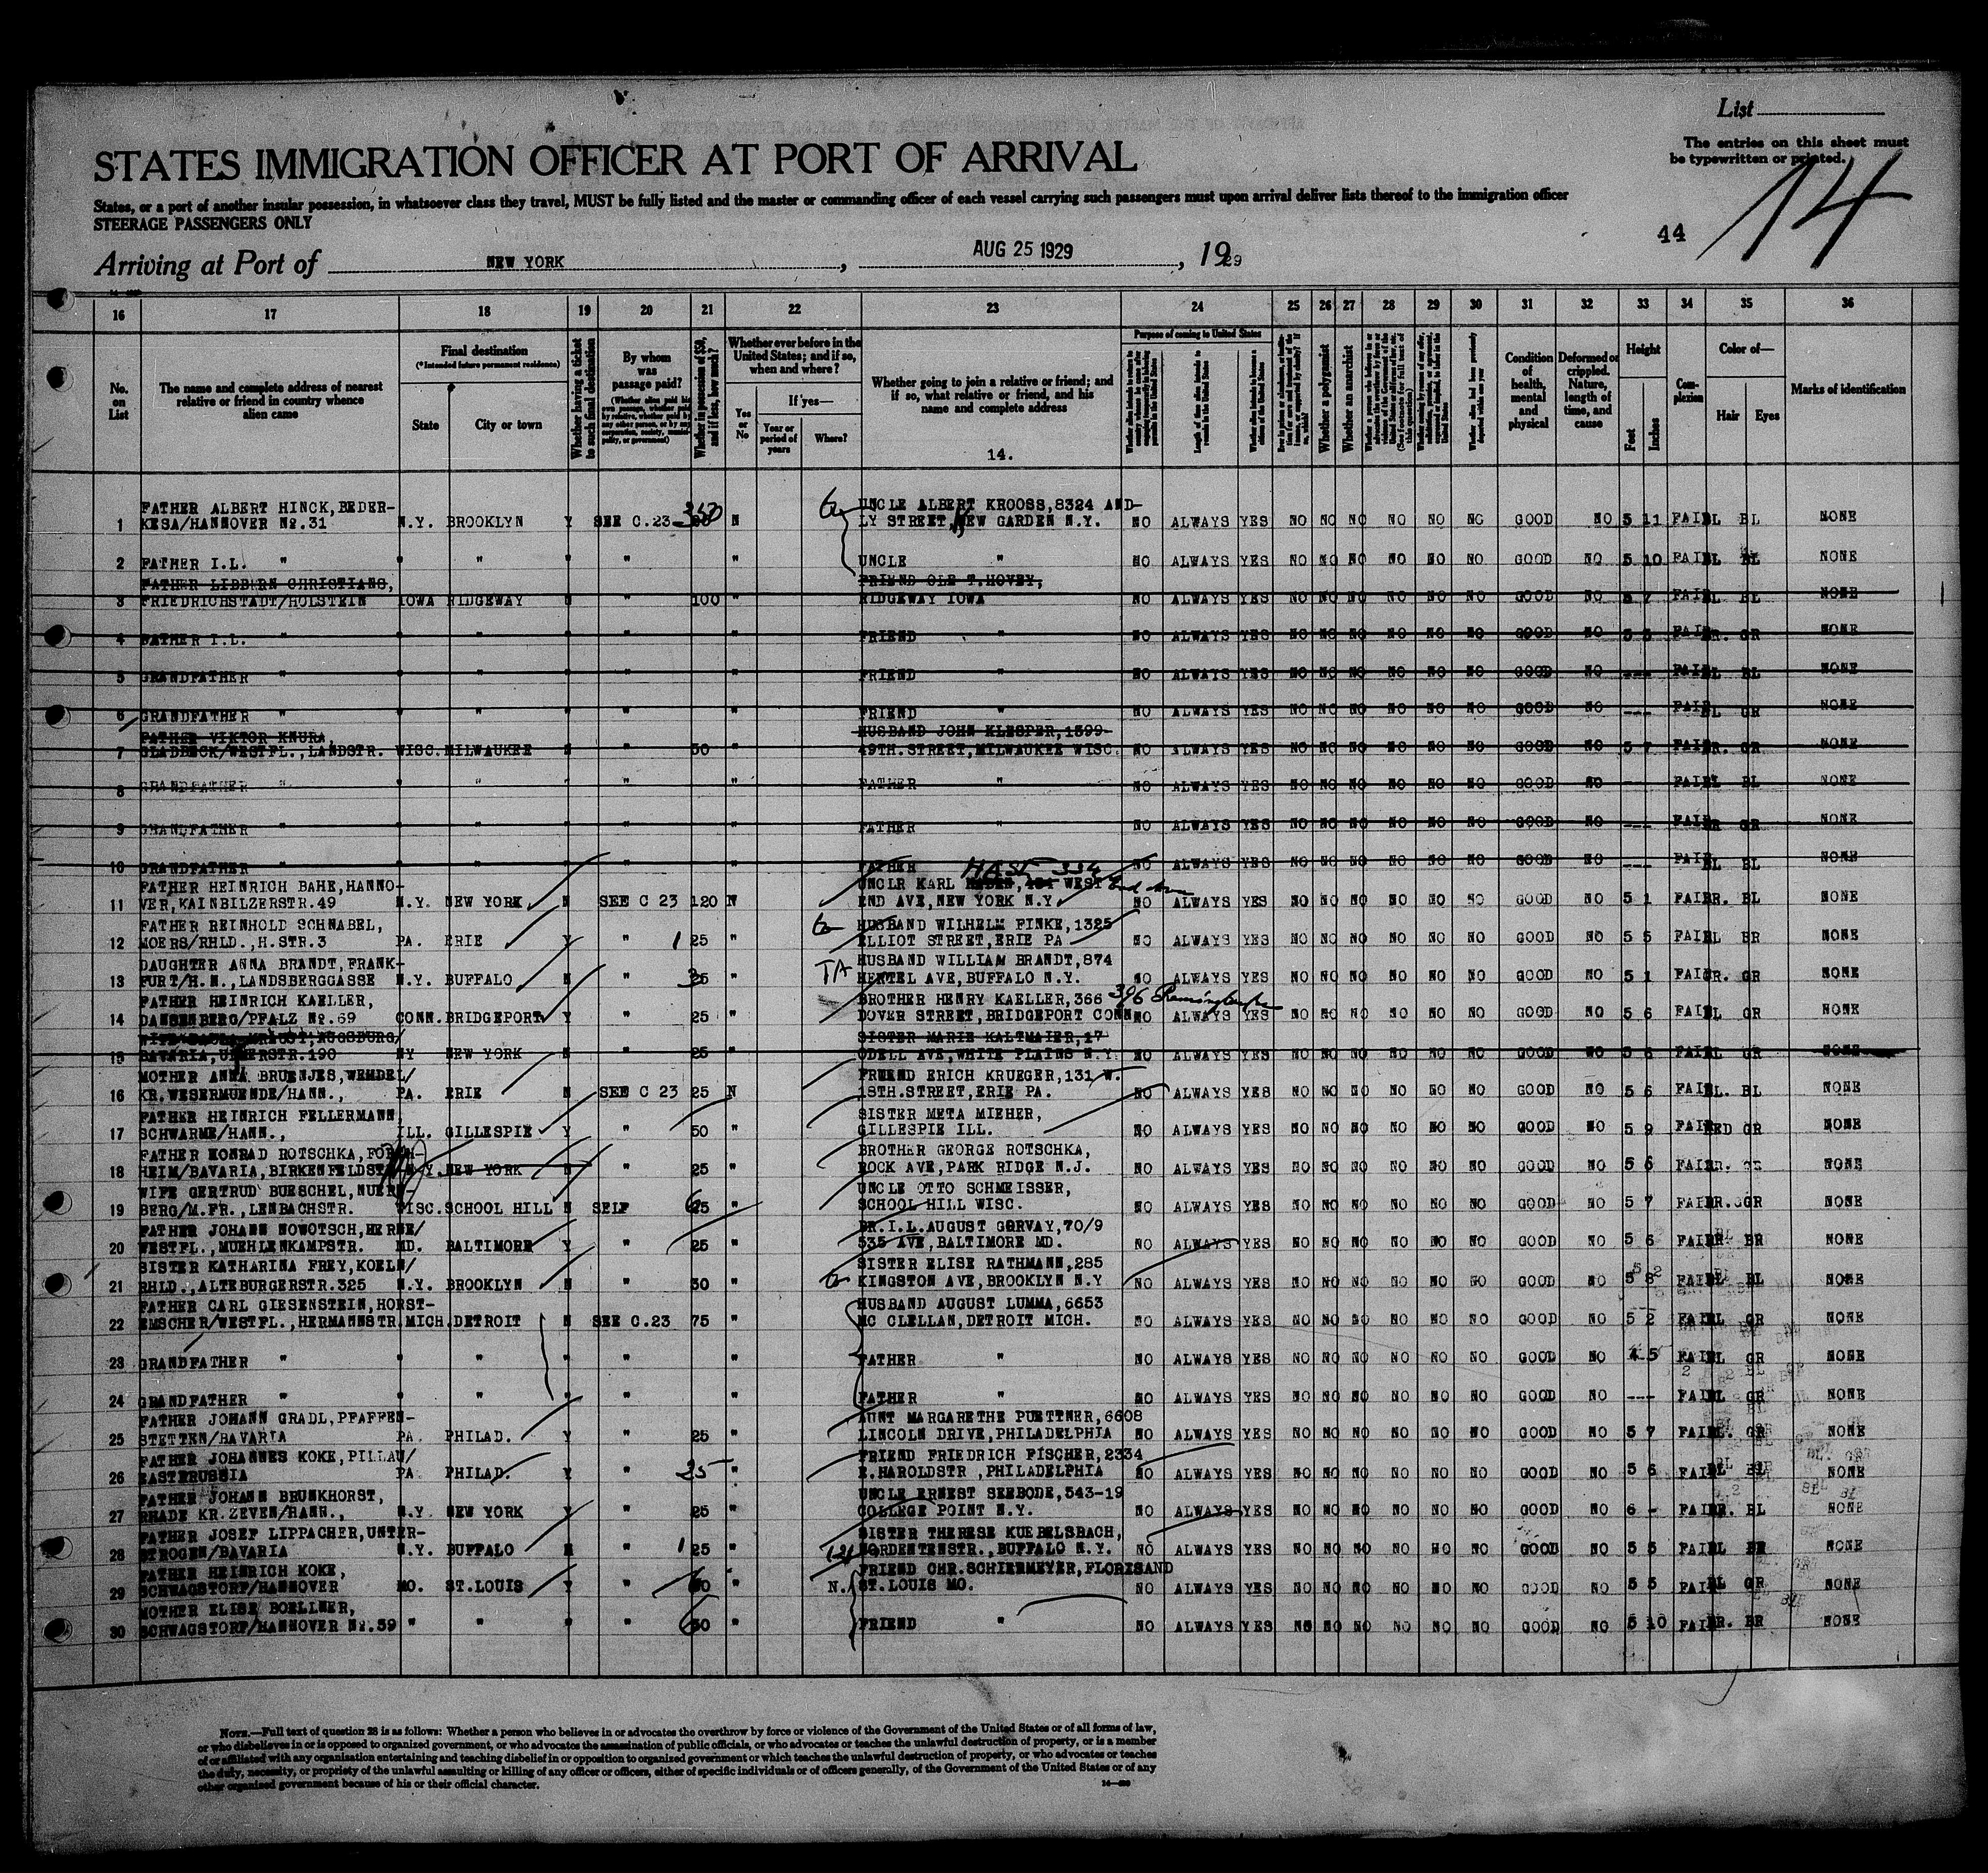 List
The entries on this sheet must
be typewritten or printed.
STATES IMMIGRATION OFFICER AT PORT OF ARRIVAL
14
States, or a port of another insular possession, in whatsoever class they travel, MUST be fully listed and the master or commanding officer of each vessel carrying such passengers must upon arrival deliver lists thereof to the immigration officer
STEERAGE PASSENGERS ONLY
44
Arriving at Port of NEW YORK , AUG 25 1929 , 1929
16 17 18 19 20 21 22 23 24 25 26 27 28 29 30 31 32 33 34 35 36
No. on List
The name and complete address of nearest relative or friend in country whence alien came
Final destination
(*Intended future permanent residence)
State
City or town
Whether having a ticket to such final destination
By whom was passage paid?
Whether in possession of $50, and if less, how much?
Whether ever before in the United States; and if so, when and where?
Yes or No
If yes—
Year or period of years
Where?
Whether going to join a relative or friend; and if so, what relative or friend, and his name and complete address
14.
Purpose of coming to United States
Whether a polygamist
Whether an anarchist
Condition of health, mental and physical
Deformed or crippled. Nature, length of time, and cause
Height
Feet
Inches
Complexion
Color of—
Hair
Eyes
Marks of identification
FATHER ALBERT HINCK, BEDER- UNCLE ALBERT KROOSS, 8324 AND-
1 KESA/HANNOVER No. 31 N.Y. BROOKLYN Y SEE C.23 350 N LY STREET, NEW GARDEN N.Y. NO ALWAYS YES NO NO NO NO NO NO GOOD NO 5 11 FAIR BL BL NONE
2 FATHER I.L. " " " " " " UNCLE " NO ALWAYS YES NO NO NO NO NO NO GOOD NO 5 10 FAIR BL BL NONE
FATHER LIBBERN CHRISTIANS, FRIEND OLE T. HOVEY,
3 FRIEDRICHSTADT/HOLSTEIN IOWA RIDGEWAY N " 100 " RIDGEWAY IOWA NO ALWAYS YES NO NO NO NO NO NO GOOD NO 5 7 FAIR BL BL NONE
4 FATHER I.L. " " " " " " FRIEND " NO ALWAYS YES NO NO NO NO NO NO GOOD NO 5 5 FAIR BR. GR NONE
5 GRANDFATHER " " " " " " FRIEND " NO ALWAYS YES NO NO NO NO NO NO GOOD NO --- FAIR BL BL NONE
6 GRANDFATHER " " " " " " FRIEND " NO ALWAYS YES NO NO NO NO NO NO GOOD NO --- FAIR BL GR NONE
FATHER VIKTOR KNURA, HUSBAND JOHN KLESPER, 1399
7 GLADBECK/WESTFL., LANDSTR. WISC. MILWAUKEE N " 50 " 49TH. STREET, MILWAUKEE WISC. NO ALWAYS YES NO NO NO NO NO NO GOOD NO 5 7 FAIR BR. GR NONE
8 GRANDFATHER " " " " " " FATHER " NO ALWAYS YES NO NO NO NO NO NO GOOD NO --- FAIR BL BL NONE
9 GRANDFATHER " " " " " " FATHER " NO ALWAYS YES NO NO NO NO NO NO GOOD NO --- FAIR BR GR NONE
10 GRANDFATHER " " " " " " FATHER NO ALWAYS YES NO NO NO NO NO NO GOOD NO --- FAIR BL BL NONE
FATHER HEINRICH BAHE, HANNO- UNCLR KARL HASE 334 WEST End Ave
11 VER, KAINBILZERSTR. 49 N.Y. NEW YORK N SEE C 23 120 N END AVE, NEW YORK N.Y. NO ALWAYS YES NO NO NO NO NO NO GOOD NO 5 1 FAIR BR. BL NONE
FATHER REINHOLD SCHNABEL, HUSBAND WILHELM FINKE, 1325
12 MOERS/RHLD., H. STR. 3 PA. ERIE Y " 125 " ELLIOT STREET, ERIE PA NO ALWAYS YES NO NO NO NO NO NO GOOD NO 5 5 FAIR BL BR NONE
DAUGHTER ANNA BRANDT, FRANK- TA HUSBAND WILLIAM BRANDT, 874
13 FURT/H.N., LANDSBERGGASSE N.Y. BUFFALO N " 35 " HERTEL AVE, BUFFALO N.Y. NO ALWAYS YES NO NO NO NO NO NO GOOD NO 5 1 FAIR GR. GR NONE
FATHER HEINRICH KAELLER, BROTHER HENRY KAELLER, 366 396
14 DANSENBERG/PFALZ No. 69 CONN. BRIDGEPORT Y " 25 " DOVER STREET, BRIDGEPORT CONN NO ALWAYS YES NO NO NO NO NO NO GOOD NO 5 6 FAIR BL GR NONE
AUGSBURG/ SISTER MARIE KALTMAIER, 17
15 BAVARIA, 190 NY NEW YORK N " 25 " ODELL AVE, WHITE PLAINS N.Y. NO ALWAYS YES NO NO NO NO NO NO GOOD NO 5 6 FAIR BL GR NONE
MOTHER ANNA BRUENJES, WEHDEL/ FRIEND ERICH KRUEGER, 131 W.
16 KR. WESERMUENDE/HANN., PA. ERIE N SEE C 23 25 N 18TH. STREET, ERIE PA. NO ALWAYS YES NO NO NO NO NO NO GOOD NO 5 6 FAIR BL. BL NONE
FATHER HEINRICH FELLERMANN, SISTER META MIEHER,
17 SCHWARME/HANN., ILL. GILLESPIE Y " 50 " GILLESPIE ILL. NO ALWAYS YES NO NO NO NO NO NO GOOD NO 5 9 FAIR RED GR NONE
FATHER KONRAD ROTSCHKA, FORCH- BROTHER GEORGE ROTSCHKA,
18 HEIM/BAVARIA, BIRKENFELDST N.Y. NEW YORK N " 25 " ROCK AVE, PARK RIDGE N.J. NO ALWAYS YES NO NO NO NO NO NO GOOD NO 5 6 FAIR BR. GR NONE
WIFE GERTRUD BUESCHEL, NUERN- UNCLE OTTO SCHMEISSER,
19 BERG/M.FR., LENBACHSTR. WISC. SCHOOL HILL N SELF 65 " SCHOOL HILL WISC. NO ALWAYS YES NO NO NO NO NO NO GOOD NO 5 7 FAIR BR. GR NONE
FATHER JOHANN NOWOTSCH, HERNE/ BR.I.L. AUGUST GORVAY, 70/9
20 WESTFL., MUEHLENKAMPSTR. MD. BALTIMORE Y " 25 " 535 AVE, BALTIMORE MD. NO ALWAYS YES NO NO NO NO NO NO GOOD NO 5 6 FAIR BR BR NONE
SISTER KATHARINA FREY, KOELN/ SISTER ELISE RATHMANN, 285
21 RHLD., ALTEBURGERSTR. 325 N.Y. BROOKLYN N " 30 " KINGSTON AVE, BROOKLYN N.Y NO ALWAYS YES NO NO NO NO NO NO GOOD NO 5 2 FAIR BL BL NONE
FATHER CARL GIESENSTEIN, HORST- HUSBAND AUGUST LUMMA, 6653
22 EMSCHER/WESTFL., HERMANNSTR. MICH. DETROIT N SEE C.23 75 " MC CLELLAN, DETROIT MICH. NO ALWAYS YES NO NO NO NO NO NO GOOD NO 5 2 FAIR BL GR NONE
23 GRANDFATHER " " " " " " FATHER " NO ALWAYS YES NO NO NO NO NO NO GOOD NO 4 5 FAIR BL GR NONE
24 GRANDFATHER " " " " " " FATHER " NO ALWAYS YES NO NO NO NO NO NO GOOD NO --- FAIR BL GR NONE
FATHER JOHANN GRADL, PFAFFEN- AUNT MARGARETHE PUETTNER, 6608
25 STETTEN/BAVARIA PA. PHILAD. Y " 25 " LINCOLN DRIVE, PHILADELPHIA NO ALWAYS YES NO NO NO NO NO NO GOOD NO 5 7 FAIR BL. GR NONE
FATHER JOHANNES KOKE, PILLAU/ FRIEND FRIEDRICH FISCHER, 2334
26 EASTRUSSIA PA. PHILAD. Y " 25 " E. HAROLDSTR, PHILADELPHIA NO ALWAYS YES NO NO NO NO NO NO GOOD NO 5 6 FAIR BL BL NONE
FATHER JOHANN BRUNKHORST, UNCLE ERNEST SEEBODE, 543-19
27 RHADE KR. ZEVEN/HANN., N.Y. NEW YORK Y " 25 " COLLEGE POINT N.Y. NO ALWAYS YES NO NO NO NO NO NO GOOD NO 6 - FAIR BR. BL NONE
FATHER JOSEF LIPPACHER, UNTER- SISTER THERESE KUEBELSBACH,
28 STROGEN/BAVARIA N.Y. BUFFALO N " 125 " NORDENTENSTR., BUFFALO N.Y. NO ALWAYS YES NO NO NO NO NO NO GOOD NO 5 5 FAIR BL BR NONE
FATHER HEINRICH KOKE, FRIEND CHR. SCHIERMEYER, FLORISAND
29 SCHWAGSTORF/HANNOVER MO. ST. LOUIS Y " 60 " N. ST. LOUIS MO. NO ALWAYS YES NO NO NO NO NO NO GOOD NO 5 5 FAIR BL GR NONE
MOTHER ELISE BOELLNER,
30 SCHWAGSTORF/HANNOVER No. 59 " " " " 60 " FRIEND " NO ALWAYS YES NO NO NO NO NO NO GOOD NO 5 10 FAIR BR. BR NONE
NOTE.—Full text of question 28 is as follows: Whether a person who believes in or advocates the overthrow by force or violence of the Government of the United States or of all forms of law,
or who disbelieves in or is opposed to organized government, or who advocates the assassination of public officials, or who advocates or teaches the unlawful destruction of property, or is a member
of or affiliated with any organization entertaining and teaching disbelief in or opposition to organized government or which teaches the unlawful destruction of property, or who advocates or teaches
the duty, necessity, or propriety of the unlawful assaulting or killing of any officer or officers, either of specific individuals or of officers generally, of the Government of the United States or of any
other organized government because of his or their official character.